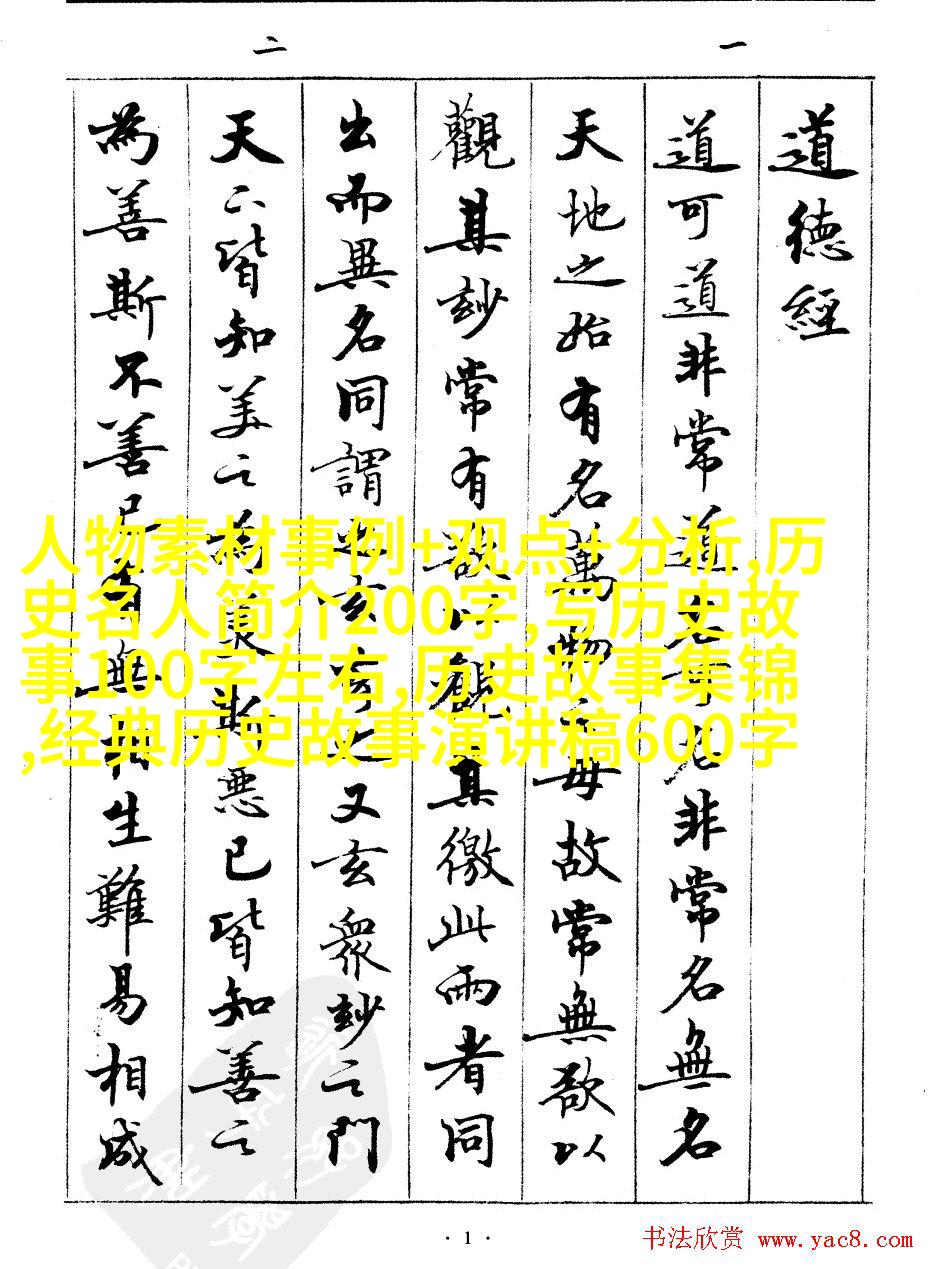 一
二
道德經
道可道非常道名可名非常名無名
天地之始有名萬物之母故常無欲以
觀其玅常有欲以觀其徼此兩者同
出而異名同謂之玄玄之又玄衆玅之門
天下皆知美之為美斯惡已皆知善之
為善斯不善已有無相生難易相成
人物素材事例+观点+分析,历
史名人简介200字,写历史故
事100字左右,历史故事集锦
,经典历史故事演讲稿600字
· 1 ·
书法欣赏 www.yac8.com